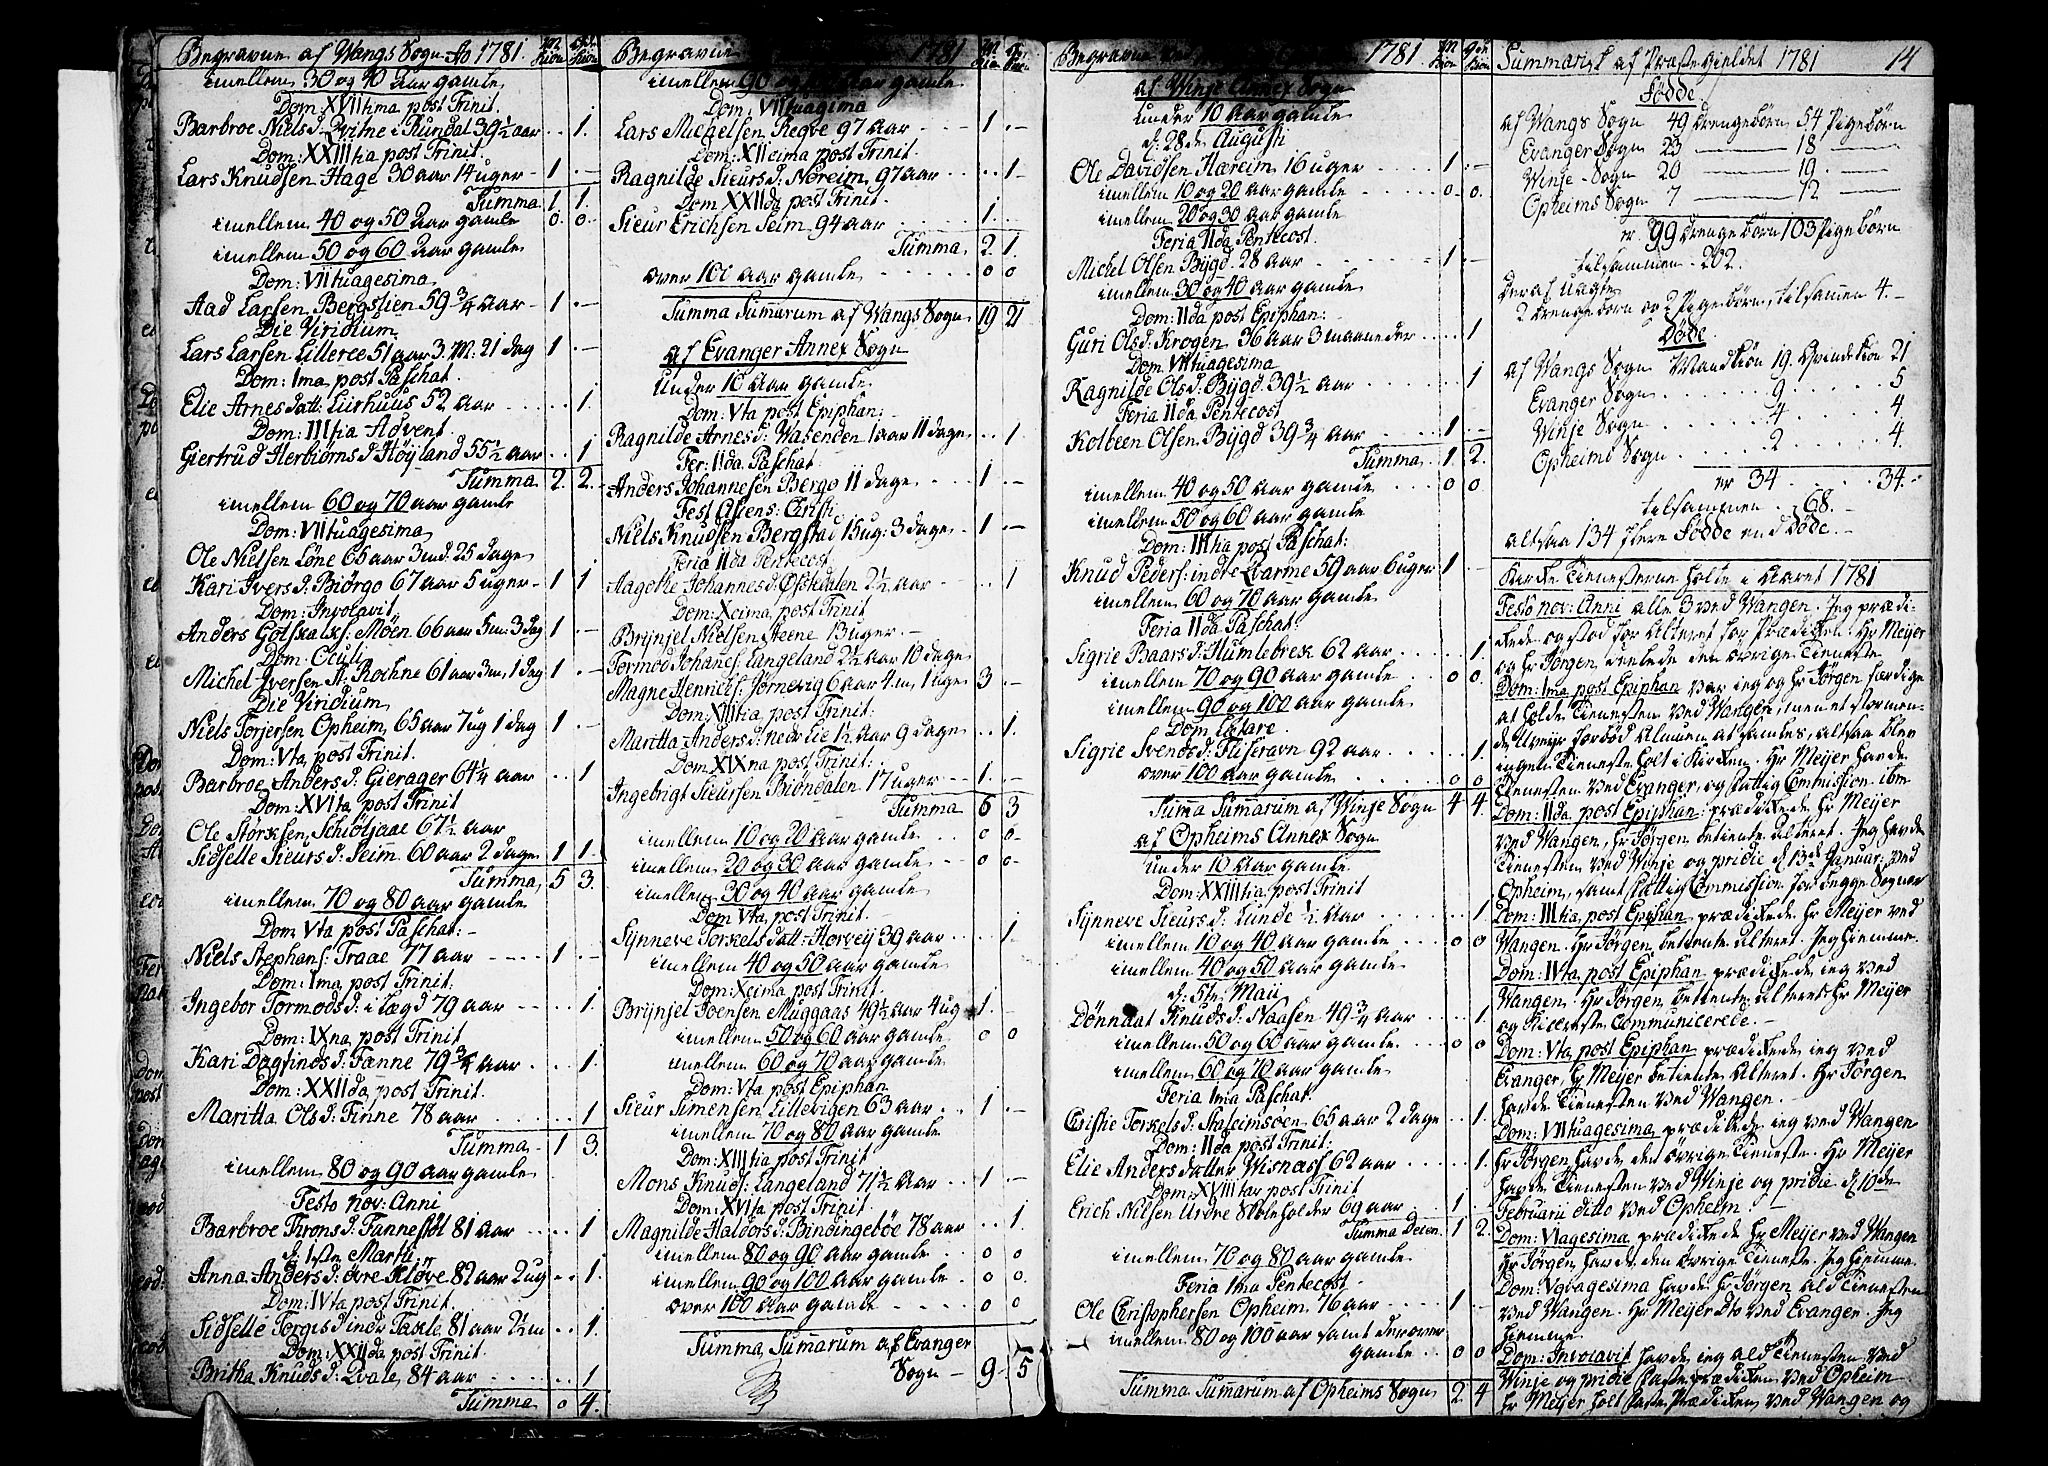 Begravne af Wangs Sogn Ao 1781.
imellem 30 og 40 aar gamle
Dom XVIItima post Trinit.
Barbroe Niels d. Qvitne i Rundal 39½ aar .. 1.
Dom: XXIIItia post Trinit.
Lars Knudsen Hage 30 aar 14 uger - 1 -
Summa 1 1.
imellem 40 og 50 aar gamle 0. 0.
imellem 50 og 60 aar gamle
Dom: VIItuagesima
Aad Larsen Bergslien 59¾ aar - 1 -
Die Viridium
Lars Larsen Lillere 51 aar 3 M: 21 dag 1 -
Dom: Ima post Paschat.
Elie Arnes datt: Liirhuus 52 aar .... 1.
Dom: IIItia Advent.
Giertrud Herbiörns d. Höyland 55½ aar .. 1
Summa 2. 2.
imellem 60 og 70 aar gamle
Dom: VIItuagesima
Ole Nielsen Löne 65 aar 3 md. 25 dage
Kari Ivers d: Biörgo 67 aar 5 uger - 1 1
Dom: Involavit
Anders Gotskalks: Möen 66 aar 5 m: 3 dag 1 -
Dom: Oculi
Michel Iversen St. Rochne 61 aar 3 m, 1 dag 1 -
Die Viridium
Niels Torjersen Opheim 65 aar 7 ug 1 dag 1 -
Dom: Vta post Trinit.
Barbroe Anders d: Gierager 64¼ aar .. 1
Dom: XVIta post Trinit
Ole Störksen Schiötjaae 67½ aar
Sidselle Sieurs d: Seim 60 aar 2 dage 1 1
Summa 5 3.
imellem 70 og 80 aar gamle
Dom Vta post Paschat: -
Niels Stephans: Traae 77 aar ---- 1 -
Dom: Ima post Trinit:
Ingebor Tormods d: i lægd 79 aar .... 1.
Dom: IXna post Trinit
Kari Dagfinds d: Fanne 79¾ aar ... 1.
Dom: XXIIda post Trinit.
Maritta Ols d: Finne 78 aar ...... 1
Summa 1 3.
imellem 80 og 90 aar gamle
Festo nov: Anni
Barbroe Trons d: Tunnestöl 81 aar .... 1
d. 1ste Martii
Anna Anders d: övre Klöve 82 aar 2 ug .. 1.
Dom: IVta post Trinit.
Sidselle Torgis d indr Taxle 81 aar 2½ m .. 1.
Dom: XXIIda post Trinit.
Britha Knuds d: Qvale 84 aar ...... 1
Summa 0 4.
Begravne 1781
imellem 90 og 100 aar gamle
Dom: VIItuagima
Lars Michelsen Regve 97 aar --- 1 -
Dom: XIIcima post Trinit.
Ragnilde Sieurs d: Noreim 97 aar ... 1 -
Dom XXIIda post Trinit.
Sieur Erichsen Seim 94 aar 1.
Summa 2 1.
over 100 aar gamle ---- 0 0
Summa Sumarum af Wangs Sogn 19 21
af Evanger Annex Sogn
under 10 aar gamle
Dom: Vta post Epiphan: -
Ragnilde Arnes d: Vasenden 1 aar 11 dage .. 1.
Fer: IIda Paschat:
Anders Johannesen Bergo 11 dage ... 1 -
Fest Ascens: Christi
Niels Knudsen Bergstad 15 ug: 3 dage 1 -
Feria IIda Pentecost
Aagothe Johannes d: Öschedalen 2½ aar - .. 1
Dom: Xcima post Trinit
Brynjel Nielsen Steene 13 uger. -
Tormod Johans: Langeland 2½ aar 10 dage
Magne Henrichs: Jörnevig 6 aar 4 m, 1 uge 3 -
Dom: XIIItia post Trinit:
Maritta Anders d: nedr Lie 1½ aar 9 dage .. 1.
Dom: XIXna post Trinit: -
Ingebrigt Sieursen Biöndalen 17 uger -- 1. -
Summa 6 3
imellem 10 og 20 aar gamle 0 0.
imellem 20 og 30 aar gamle -- 0 0-
imellem 30 og 40 aar gamle
Dom Vta post Trinit. -
Synneve Torkels datt: Horvey 39 aar ... 1.
imellem 40 og 50 aar gamle
Dom: Xcima post Trinit.
Brynjel Joensen Muggaas 49½ aar 4 ug 1. -
imellem 50 og 60 aar gamle 0 0
mellem 60 og 70 aar gamle
Dom: Vta post Epiphan
Sieur Simensen Lillevigen 63 aar .. 1 -
imellem 70 og 80 aar gamle
Dom: XIIItia post Trinit
Mons Knuds: Langeland 71½ aar .. 1 -
Dom: XVIta post Trinit
Magnilde Haldors d: Bindingeböe 78 aar .. 1
imellem 80 og 90 aar gamle . 0 0
imellem 90 og 100 aar gamle . 0 0.
over 100 aar gamle ----- 0 0
Summa Sumarum af Evanger
Sogn - 9 5
Begravne 1781.
af Winje Annex Sogn
under 10 aar gamle
d: 28de Augusti
Ole Davidsen Hæreim 16 uger ... 1. -
imellem 10 og 20 aar gamle 0. 0.
imellem 20 og 30 aar gamle
Feria IIda Pentecost.
Michel Olsen Bygd 28 aar ..... 1. -
imellem 30 og 40 aar gamle
Dom: IIda post Epiphan:
Guri Ols d: Krogen 36 aar 3 maaneder ... 1
Dom VIItuagesima
Ragnilde Ols d: Bygd 39½ aar ...... 1
Feria IIda Pentecost
Kolbeen Olsen Bygd 39¾ aar ..... 1. -
Summa 1. 2.
imellem 40 og 50 aar gamle . 0 0.
imellem 50 og 60 aar gamle
Dom: IIItia post Paschat:
Knud Peders: indre Qvarme 59 aar 6 uger 1. -
imellem 60 og 70 aar gamle
Feria IIda Paschat:
Sigrie Baars d: Humlebrek 62 aar .... 1.
imellem 70 og 90 aar gamle . 0 0.
imellem 90 og 100 aar gamle
Dom Lætare
Sigrie Svends d: Fliseravn 92 aar ..... 1.
over 100 aar gamle ..... 0 0
Suma Sumarum af Winje Sogn 4 4.
af Opheims Annex Sogn
under 10 aar gamle
Dom: XXIIItia post Trinit
Synneve Sieurs d: Lunde ½ aar ..... 1.
imellem 10 og 40 aar gamle . 0 0
imellem 40 og 50 aar gamle
d: 5te Maii
Dönnaat Knuds d: Naasen 49¾ aar ... 1.
imellem 50 og 60 aar gamle . 0 0
imellem 60 og 70 aar gamle
Feria Ima Paschat.
Cristie Torkels d: Staleimsöen 65 aar 2 dage .. 1.
Dom: IIda post Trinit:
Elie Anders datter Wisnæss 62 aar ..... 1.
Dom: XVIIItav post Trinit
Erich Nilsen Urdve Skoleholder 69 aar . 1.
Summa 1 2.
imellem 70 og 80 aar gamle
Feria Ima Pentecost. -
Ole Christophersen Opheim 76 aar .... 1 -
imellem 80 og 100 aar samt derover
gamle .. 0 0
Summa Sumarum af Opheims Sogn 2 4
Summarisk af Præste Gieldet 1781 14
Födde
af Wangs Sogn 49 drengebörn 54 Pigebörn
Evanger Sogn 23 --- 18 ---
Winje - Sogn 20 --- 19. ---
Opheims Sogn 7 --- 12 ---
er 99 drengebörn 103 Pigebörn
tilsammen 202.
deraf uægte
2 drengebörn og 2 Pigebörn, tilsamen 4. -
Döde
af Wangs Sogn Mandkiön 19. Qvindekiön 21
Evanger Sogn ..... 9 ..... 5
Winje Sogn ..... 4. ..... 4.
Opheims Sogn ..... 2 ..... 4.
er 34 ..... 34. -
tilsammen . 68. -
altsaa 134 flere Födde end Döde. -
Kirke Tienesterne holte i Aaret 1781
Festo nov: Anni alle 3 ved Wangen. Jeg prædi-
kede og stod for Alteret for Prædiken. Hr Meyer
og Hr Jörgen deelede den övrige Tieneste
Dom: Ima post Epiphan var ieg og Hr Jörgen færdige
at holde Tienesten ved Wangen, men et stormen-
de Uveyr forböd Almuen at samles, altsaa blev
ingen Tieneste holt i Kirken. Hr Meyer havde
Tienesten ved Evanger, og Fattig Commission ibm
Dom: IIda post Epiphan: prædikede Hr Meyer
ved Wangen, Hr Jörgen betiente Alteret. Jeg havde
Tienesten ved Winje og pridie d 13de Januar: ved
Opheim, samt Fattig Commission for begge Sogner
Dom: IIItia post Epiphan prædikede Hr Meyer ved
Wangen. Hr Jörgen betiente Alteret. Jeg hiemme.
Dom: IVta post Epiphan prædikede ieg ved
Wangen. Hr Jörgen betiente Alteret. Hr Meyer
og Kiereste Communicerede. -
Dom: Vta post Epiphan prædikede ieg ved
Evanger, Hr Meyer betiente Alteret. Hr Jörgen
havde Tienesten ved Wangen. -
Dom: VIItuagesima prædikede ieg ved Wangen
Hr Jörgen havde den övrige Tieneste. Hr Meyer
havde Tienesten ved Winje og pridie d 10de
Februarii ditto ved Opheim. -
Dom: VIagesima prædikede Hr Meyer ved Wangen
Hr Jörgen havde den övrige Tieneste. Jeg hiemme.
Dom: Vqvagesima havde Hr Jörgen ald Tienesten
ved Wangen. Hr Meyer Dto ved Evanger. Jeg
hiemme.
Dom: Invocavit havde ieg ald Tienesten ved
Winje og pridie Faste Prædiken ved Opheim
Hr Meyer holt Faste Prædiken ved Wangen og